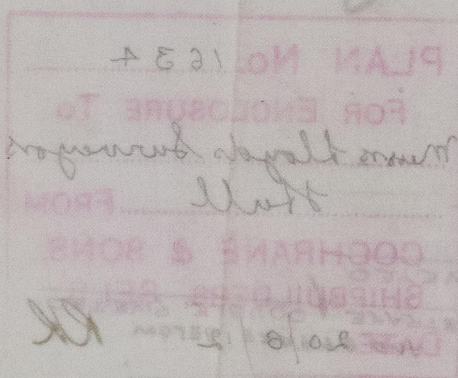 PLAN No. 1634
FOR ENCLOSURE TO
Messrs Lloyds Surveyors
Hull FROM
COCHRANE & SONS
SHIPBUILDERS SELBY
DATE 20/8/2